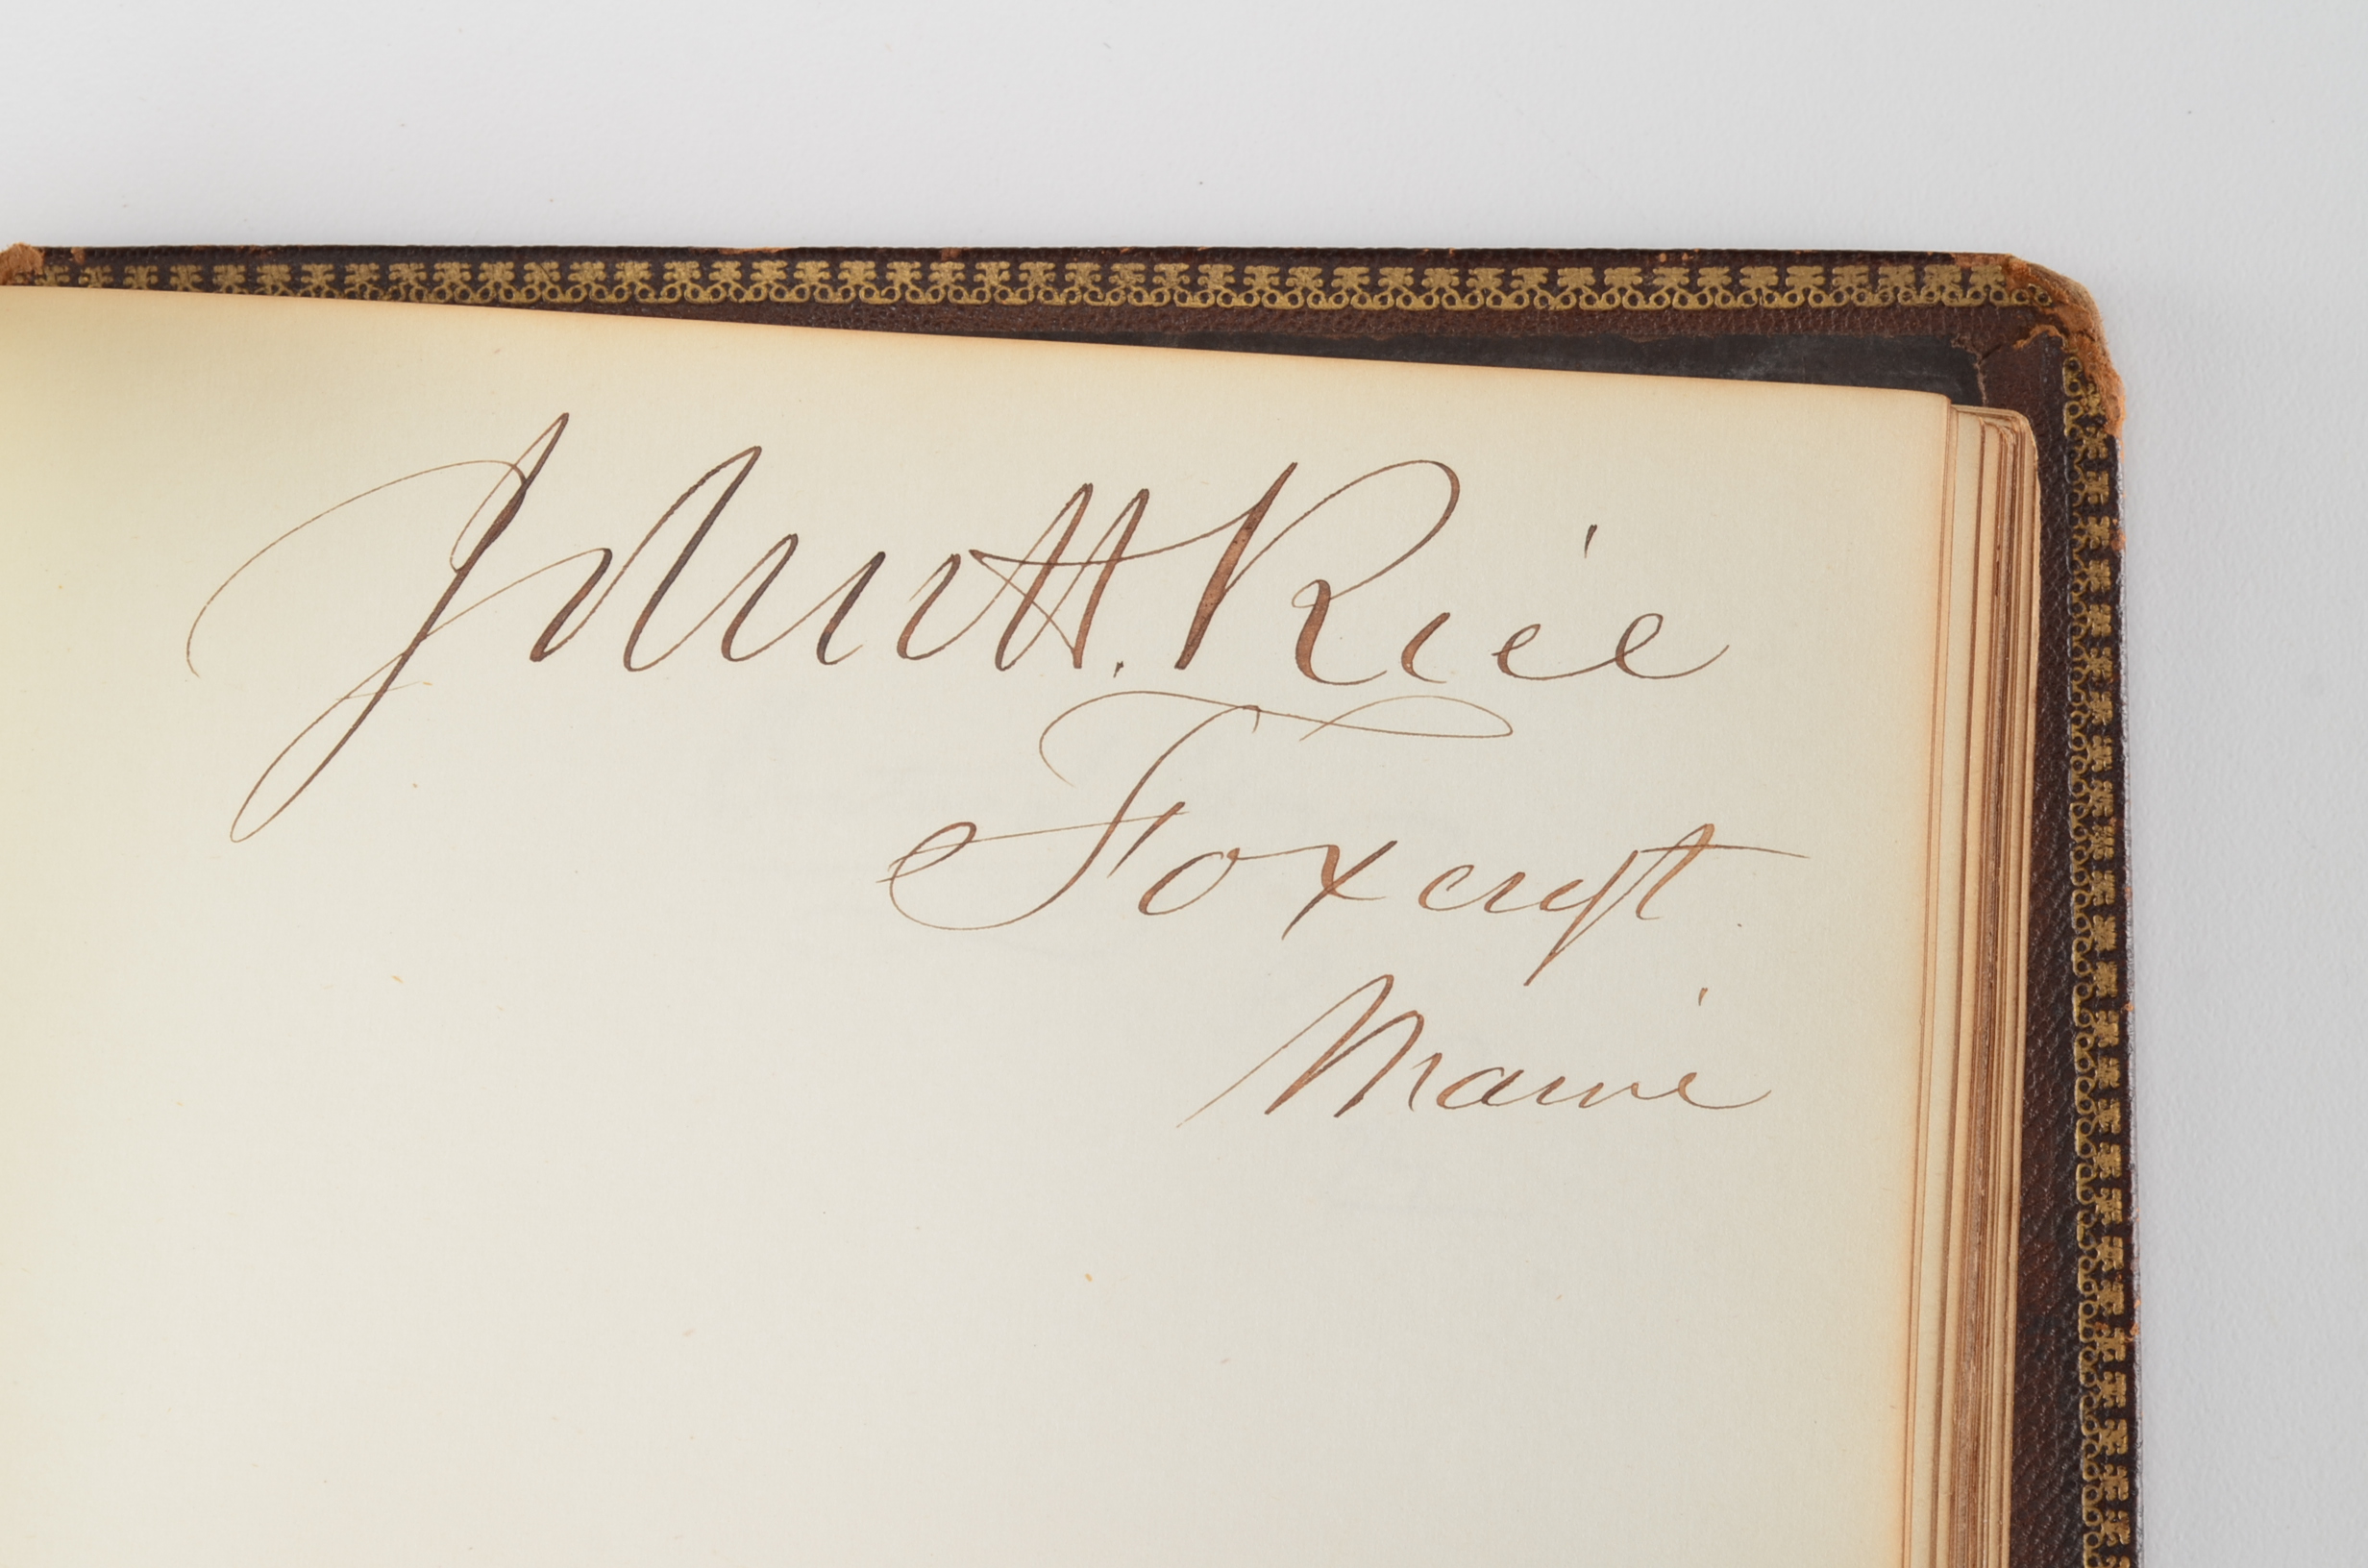 John H. Rice
Foxcroft
Maine